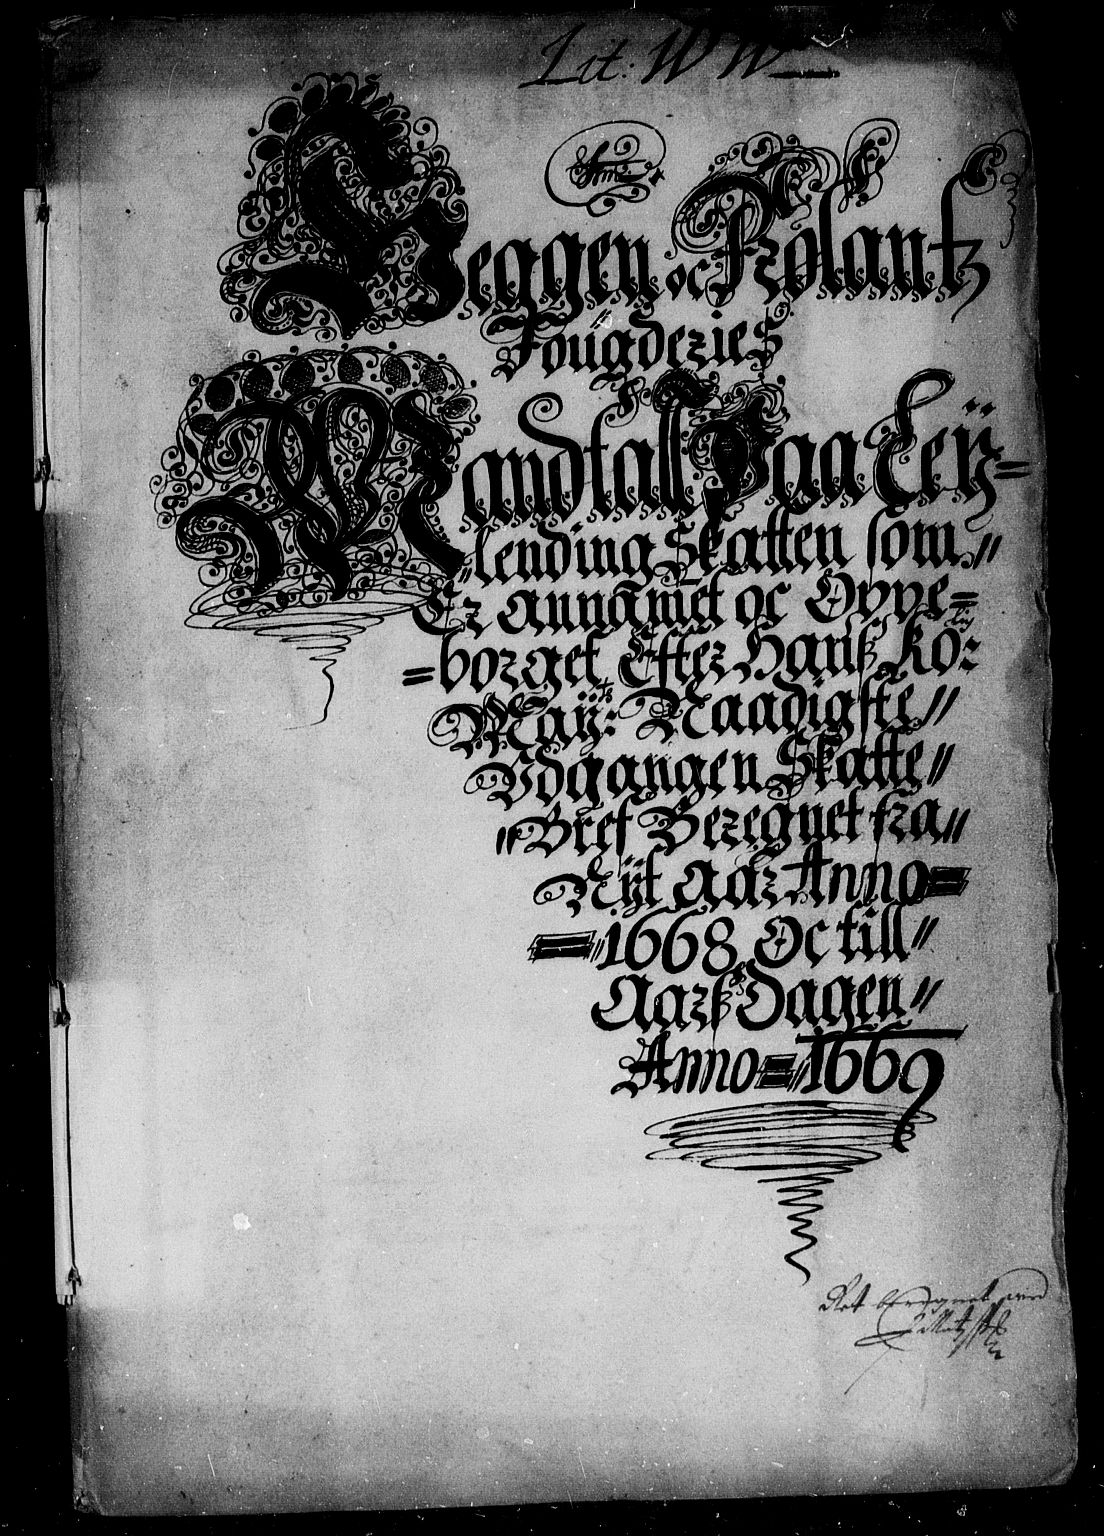 Lit: W W
Heggen oc Frolantz
Fougderies
Mandtall Paa Leÿ=
lending Skatten som //
Er annamet oc Oppe=
=borget Efter Hanß Ko: lig
Maÿ: ts Naadigste //
Udgangen Skatte //
// Bref Beregnet fra //
Nÿt Aar Anno =
= 1668 Oc till //
Aarß Dagen //
Anno = 1669
Ret beregnet